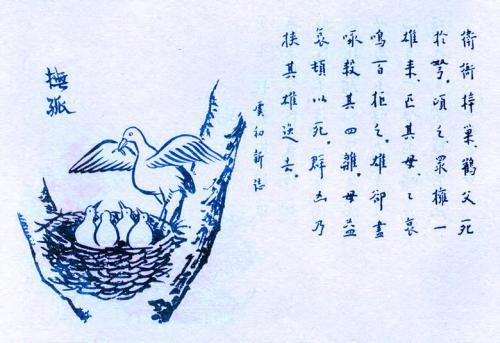 衛衙梓巢、鸛父死
於弩。頃之、眾擁一
雄來、匹其母、々哀
鳴百拒之。雄卻盡
啄殺其四雛。母益
哀頓以死。群凶乃
挾其雄逸去。
虞初新誌
撫孤